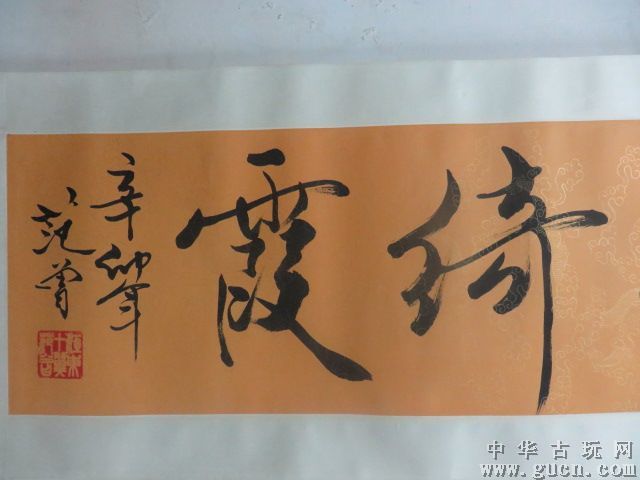 绮霞
辛卯年
范曾
中华古玩网
www.gucn.com